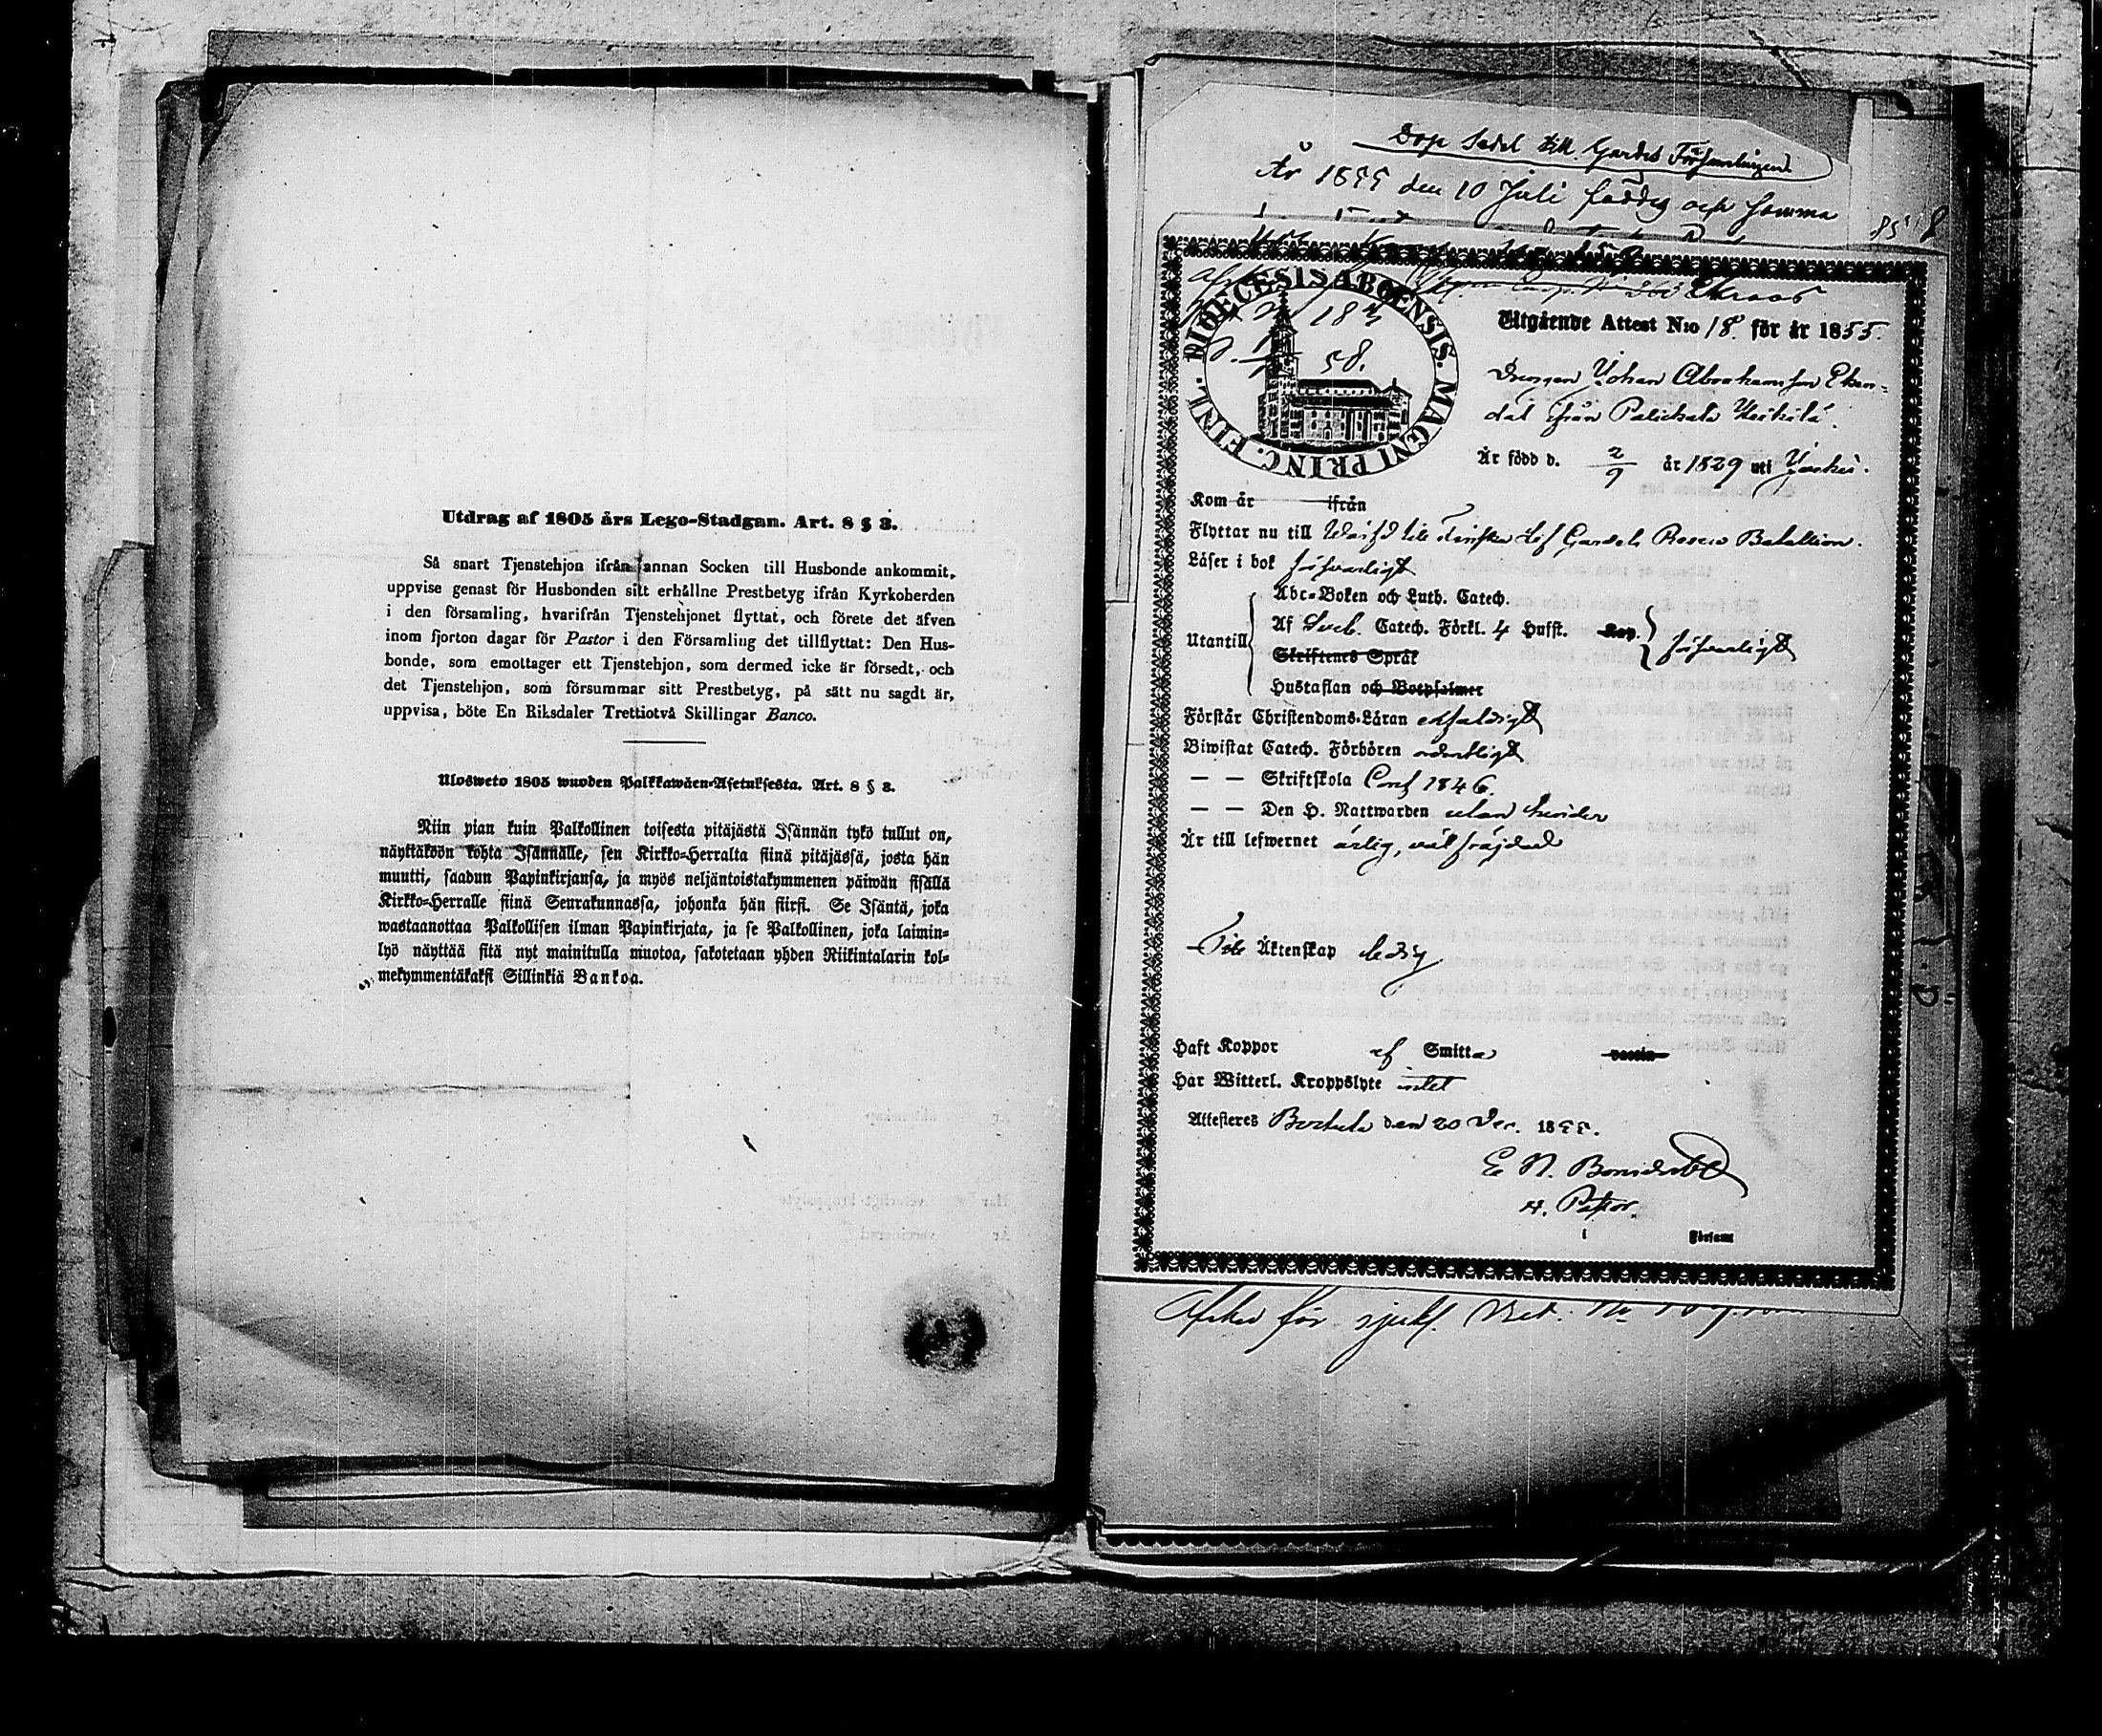 Utdrag af 1805 års Lego-Stadgan. Art. 8 § 3.
Så snart Tjenstehjon ifrån annan Socken till Husbonde ankommit,
uppvise genast för Husbonden sitt erhållne Prestbetyg ifrån Kyrkoherden
i den församling, hvarifrån Tjenstehjonet flyttat, och förete det äfven
inom fjorton dagar för Pastor i den Församling det tillflyttat: Den Hus-
bonde, som emottager ett Tjenstehjon, som dermed icke är försedt, och
det Tjenstehjon, som försummar sitt Prestbetyg, på sätt nu sagdt är,
uppvisa, böte En Riksdaler Trettiotvå Skillingar Banco.
Ulosweto 1805 wuoden Palkkawäen-Asetuksesta. Art. 8 § 3.
Niin pian kuin Palkollinen toisesta pitäjästä Isännän tykö tullut on,
näyttäköön kohta Isännälle, sen Kirkko-Herralta siinä pitäjässä, josta hän
muutti, saadun Papinkirjansa, ja myös neljäntoistakymmenen päiwän sisällä
Kirkko-Herralle siinä Seurakunnassa, johonka hän siirsi. Se Isäntä, joka
wastaanottaa Palkollisen ilman Papinkirjata, ja se Palkollinen, joka laimin-
lyö näyttää sitä nyt mainitulla muotoa, sakotetaan yhden Riikintalarin kol-
mekymmentäkaksi Sillinkiä Bankoa.
Dop Sedel till Gardes Församlingen
År 1855 den 10 Juli föddes och samma
85 8
DIŒCESIS ABOENSIS. MAGNI PRINC. FINL.
58.
Utgående Attest N:o 18 för år 1855.
Drengen Johan Abrahamsson Eken-
dal ifrån Palikala Heikilä.
Är född d. 2/9 år 1829 uti Jockis.
Kom år ifrån
Flyttar nu till Finska Lif Gardets Reserv Bataillon.
Läser i bok försvarligt
Abc-Boken och Luth. Catech.
Utantill Af Sveb. Catech. Förkl. 4 Hufst. Kap. försvarligt
Skriftenes Språk
Hustaflan och Botpsalmer
Förstår Christendoms-Läran enfaldigt
Biwistat Catech. Förhören ordentligt
— — Skriftskola Conf 1846.
— — Den H. Nattwarden utan hinder
Är till lefwernet ärlig, väl fräjdad
Till Äktenskap ledig
Haft Koppor af Smitta vaccin
Har Witterl. Kroppslyte intet
Attesteres den 20 Dec. 1855.
E. N.
Pastor.
i Församl
för sjukl. Bet.